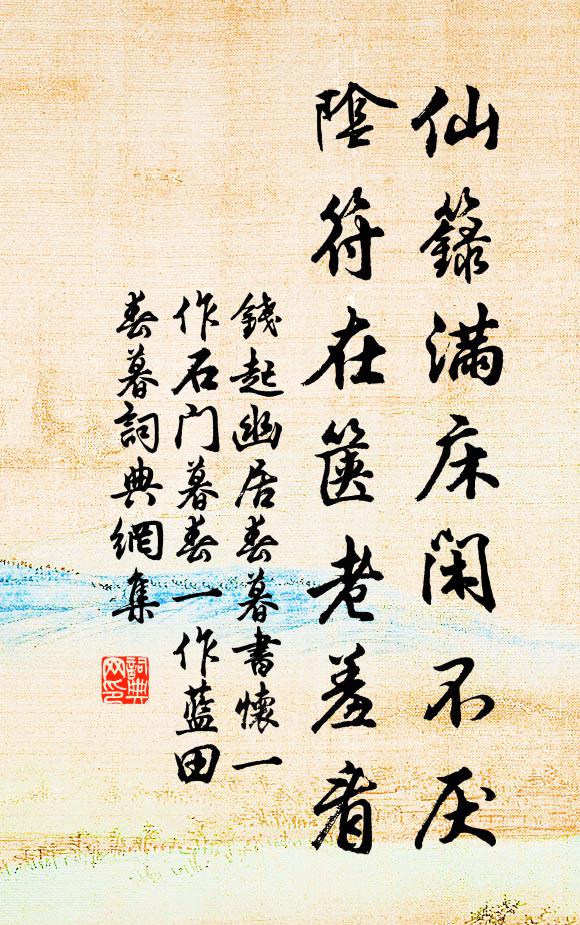 仙籙满床闲不厌
陰符在箧老羞看
錢起幽居春暮書懷一
作石门暮春一作藍田
春暮詞典網集
詞典
网印